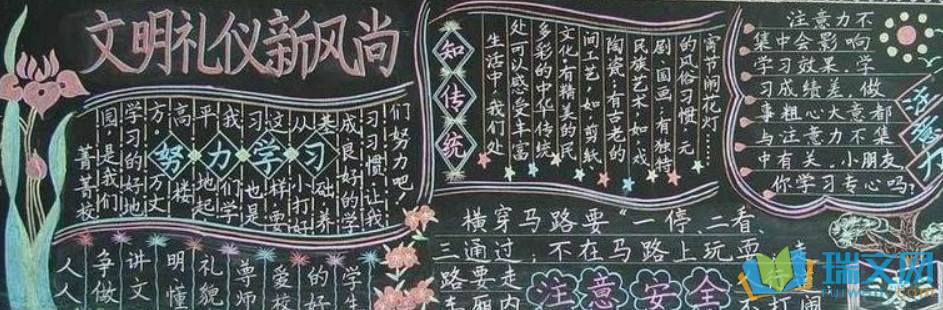 文明礼仪新风尚
菁菁校
园,是我们
学习的好地
方.万丈
高楼
平地起
我们学
习也是
这样,要
从小打好
基础,养
成良好的学
习习惯,让我
们努力吧!
努力学习
人人
争做
讲文
明懂
礼貌
尊师
爱校
的好
学生
知传统
生活中,我们处
处可以感受丰富
多彩的中华传统
文化.有精美的民
间工艺,如,剪纸
陶瓷;有古老的
民族艺术,如,戏
剧、国画,有独特
的风俗习惯,元
宵节闹花灯……
注意力不
集中会影响
学习效果,学
习成绩差,做
事粗心大意都
与注意力不集
中有关,小朋友
你学习专心吗?
注意力
横穿马路要"一停、二看、
三通过,不在马路上玩耍,走
路要走
车厢内
打闹
注意安全
瑞文网